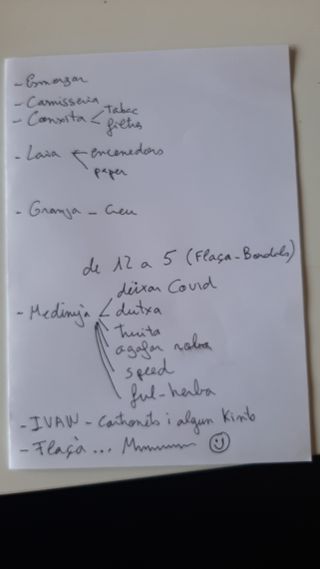 - Esmorzar
- Carnisseria
- Conxita < tabac
filtres
- Laia < encenedors
paper
- Granja - Creu
de 12 a 5 (Flaçà - Bordils)
- Medinyà < deixar Covid
dutxa
truita
agafar roba
speed
ful-herba
- IVAN - Cartronets i algun
- Flaçà ... Mmmmmm ☺